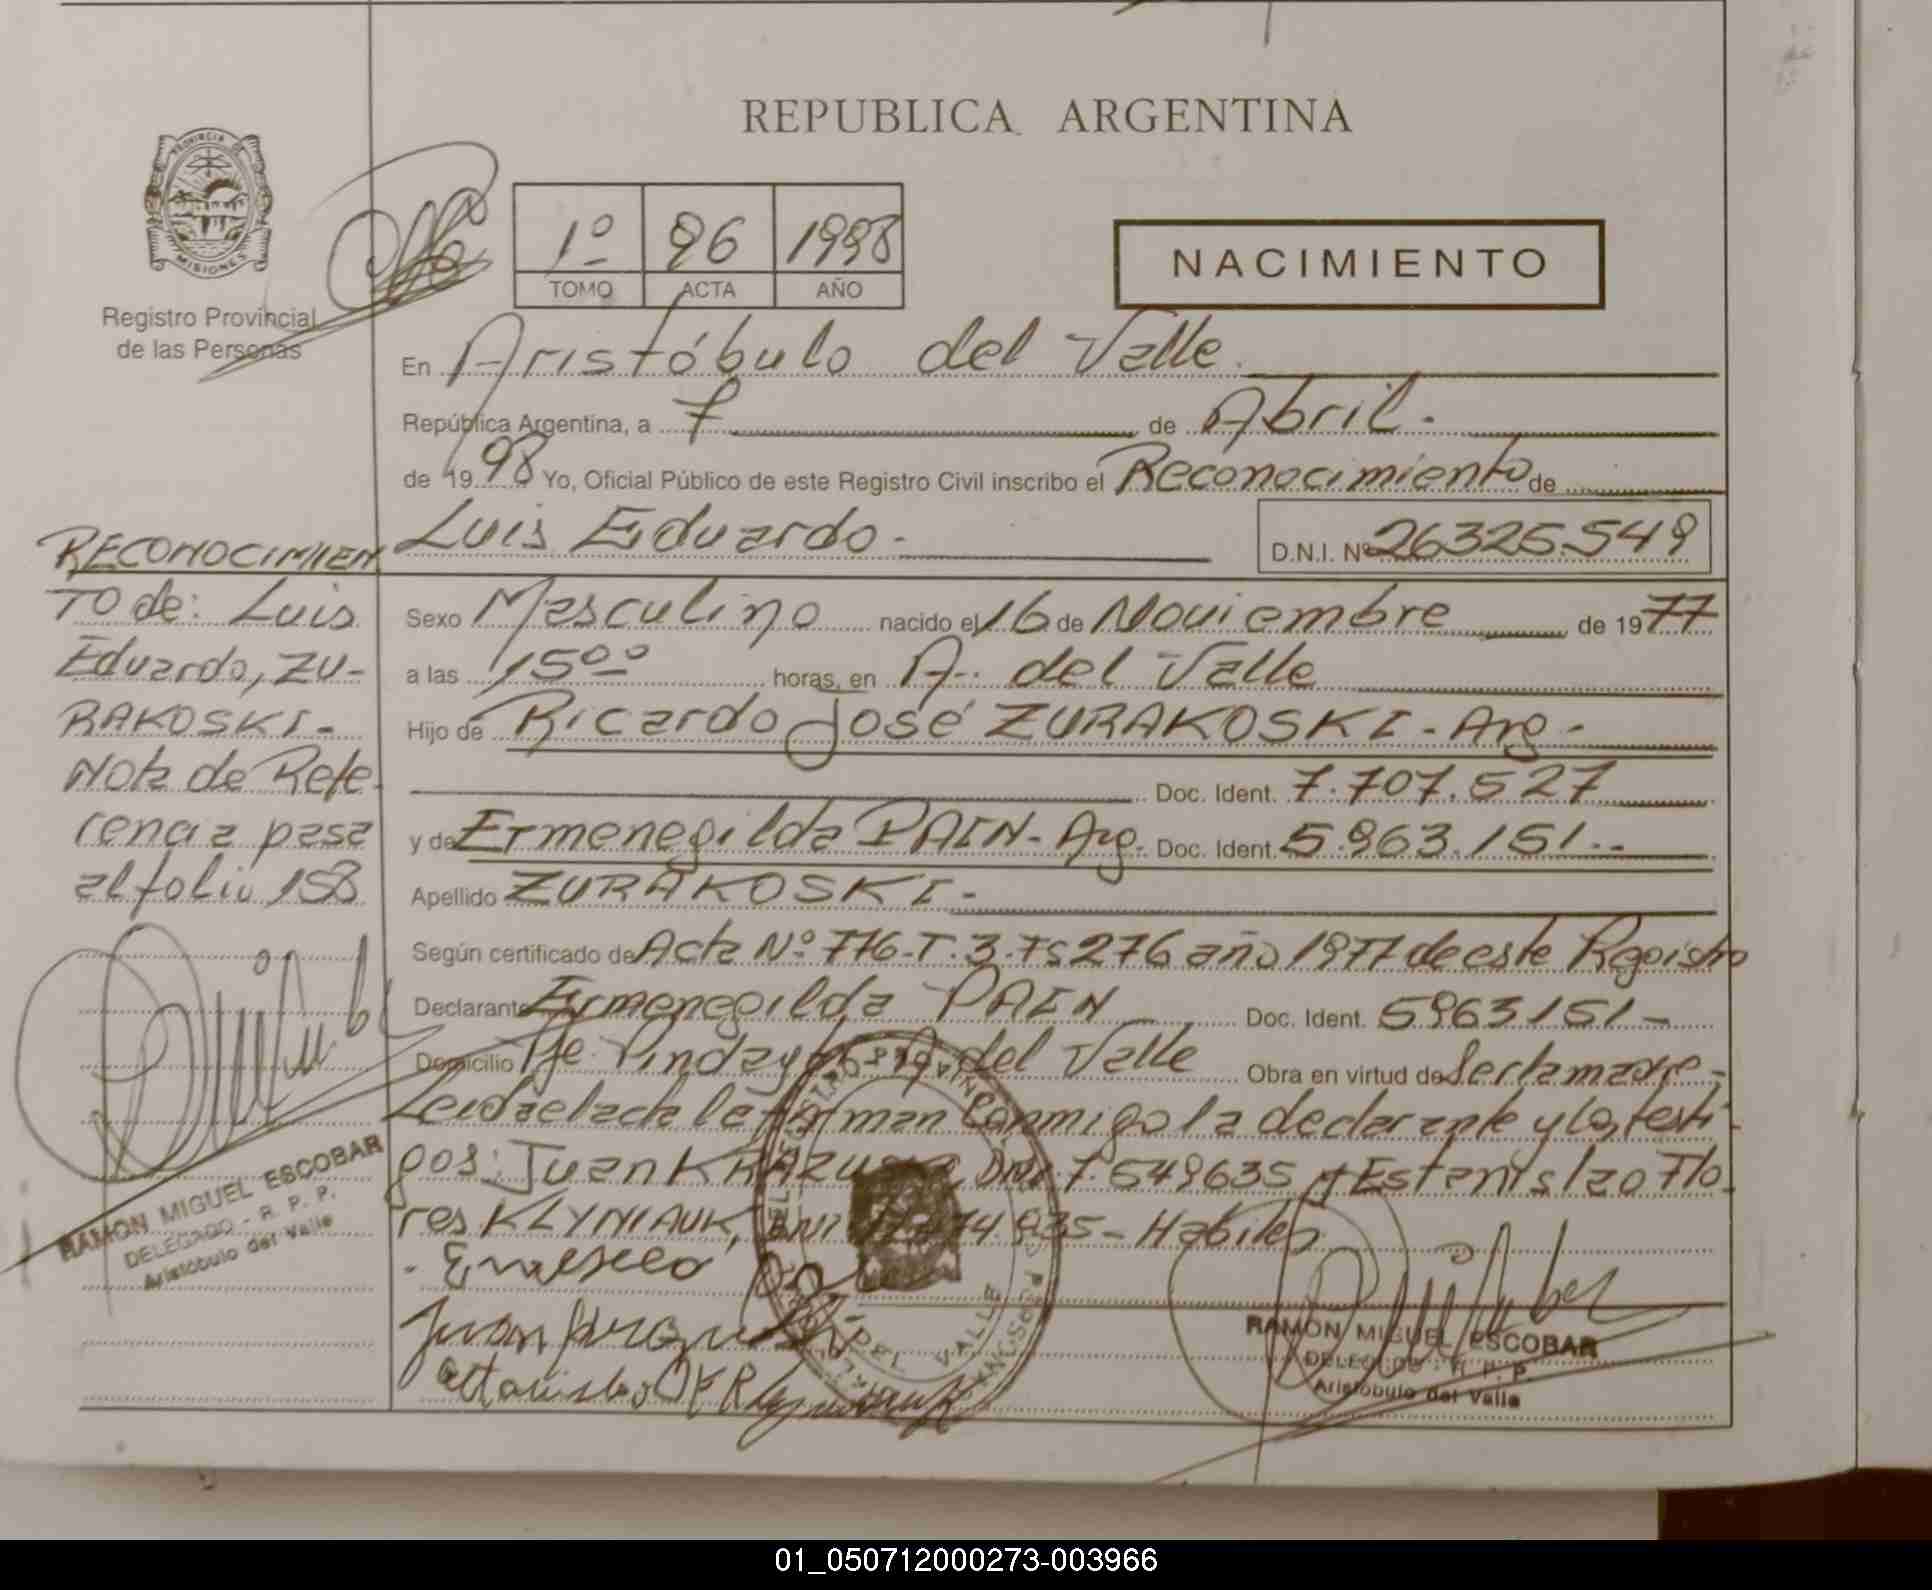 REPUBLICA ARGENTINA
PROVINCIA DE
MISIONES
Registro Provincial
de las Personas
1º 96 1998
TOMO ACTA AÑO
NACIMIENTO
En Aristóbulo del Valle.
República Argentina, a 7 de Abril.
de 1998 Yo, Oficial Público de este Registro Civil inscribo el Reconocimiento de
Luis Eduardo.-
D.N.I. Nº 26325.549
RECONOCIMIEN
TO de: Luis
Eduardo, ZU-
RAKOSKI-
Nota de Refe-
rencia pasa
al folio 158
RAMON MIGUEL ESCOBAR
DELEGADO - R. P. P.
Aristóbulo del Valle
Sexo Masculino nacido el 16 de Noviembre de 1977
a las 15ºº horas, en A. del Valle
Hijo de Ricardo José ZURAKOSKI - Arg.-
Doc. Ident. 7.707.527
y de Ermenegilda PAIN- Arg. Doc. Ident. 5.963.151.-
Apellido ZURAKOSKI-
Según certificado de Acta Nº 776-T.3-Fs 276 año 1977 de este Registro
Declarante Ermenegilda PAIN Doc. Ident. 5963151-
Domicilio Pje. Pindayti A. del Valle Obra en virtud de Ser la madre-
Leida el acta la firman Conmigo la declarante y los testi-
gos: Juan DNI. 7.549635 y Estanislao Flo-
res KLYNIAUK, DNI 935- Habiles
RAMON MIGUEL ESCOBAR
DELEGADO - R. P. P.
Aristóbulo del Valle
01_050712000273-003966